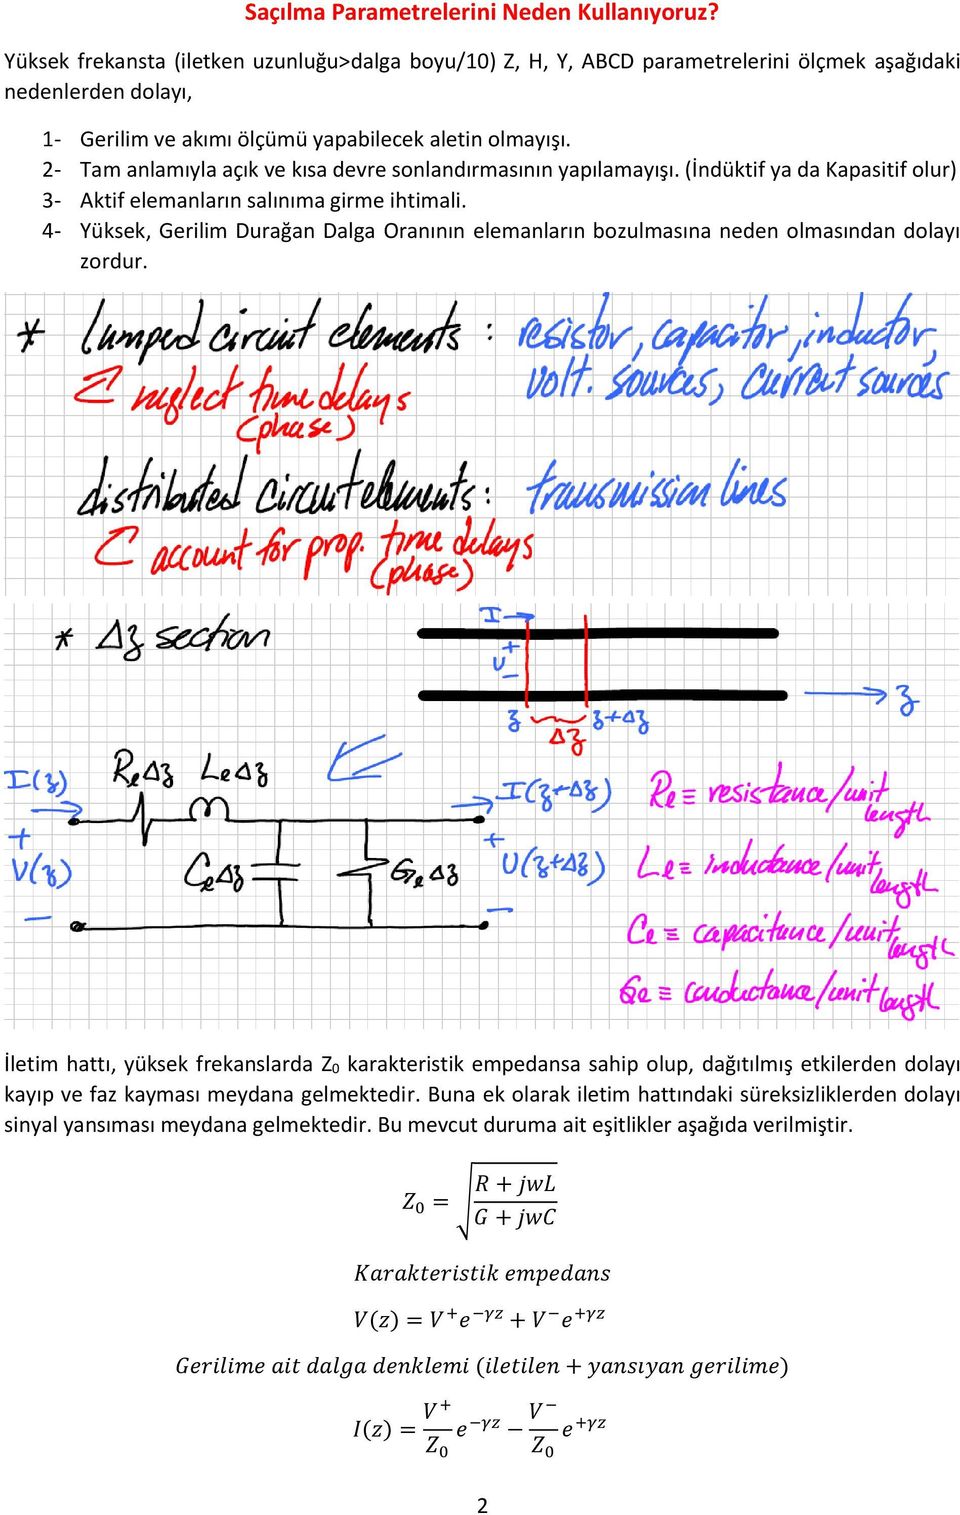 Saçılma Parametrelerini Neden Kullanıyoruz?
Yüksek frekansta (iletken uzunluğu>dalga boyu/10) Z, H, Y, ABCD parametrelerini ölçmek aşağıdaki
nedenlerden dolayı,
1- Gerilim ve akımı ölçümü yapabilecek aletin olmayışı.
2- Tam anlamıyla açık ve kısa devre sonlandırmasının yapılamayışı. (İndüktif ya da Kapasitif olur)
3- Aktif elemanların salınıma girme ihtimali.
4- Yüksek, Gerilim Durağan Dalga Oranının elemanların bozulmasına neden olmasından dolayı
zordur.
* lumped circuit elements: resistor, capacitor, inductor,
volt. sources, current sources
neglect time delays
(phase)
distributed circuit elements: transmission lines
account for prop. time delays
(phase)
* Δz section
I
+
V
-
z
z z+Δz
Δz
I(z) ReΔz LeΔz I(z+Δz) Re ≡ resistance/unit
length
+ +
V(z) CeΔz GeΔz V(z+Δz) Le ≡ inductance/unit
length
- -
Ce ≡ capacitance/unit
length
Ge ≡ conductance/unit
length
İletim hattı, yüksek frekanslarda Z₀ karakteristik empedansa sahip olup, dağıtılmış etkilerden dolayı
kayıp ve faz kayması meydana gelmektedir. Buna ek olarak iletim hattındaki süreksizliklerden dolayı
sinyal yansıması meydana gelmektedir. Bu mevcut duruma ait eşitlikler aşağıda verilmiştir.
Z₀ = √((R + jwL)/(G + jwC))
Karakteristik empedans
V(z) = V⁺e^(−γz) + V⁻e^(+γz)
Gerilime ait dalga denklemi (iletilen + yansıyan gerilime)
I(z) = (V⁺/Z₀)e^(−γz) − (V⁻/Z₀)e^(+γz)
2